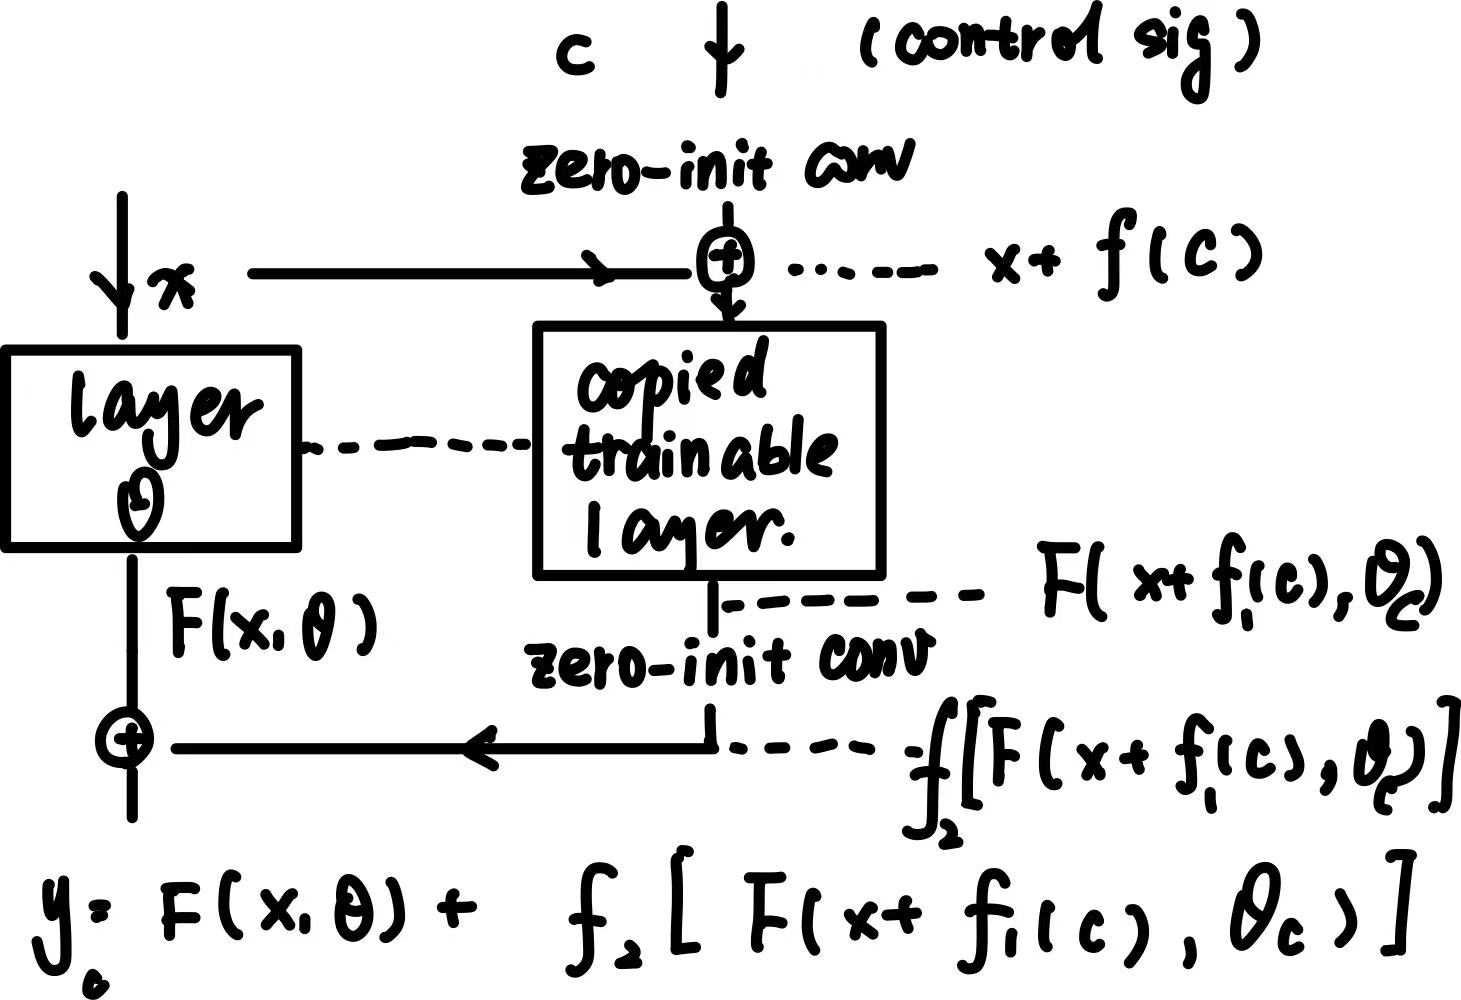 c (control sig)
zero-init conv
x
+
x + f(c)
layer
θ
copied
trainable
layer.
F(x, θ)
F(x+f₁(c), θc)
zero-init conv
+
f₂[F(x+f₁(c), θc)]
yc = F(x, θ) + f₂[F(x+f₁(c), θc)]